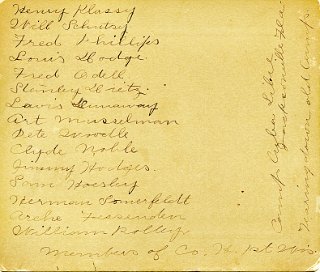 Henry Klassy
Will Schutsy
Fred Phillips
Louis Hodge
Fred Odell
Stanley Hietz
Lavis Dunaway
Art Musselman
Pete
Clyde Noble
Jimmy Hodges.
Sam Hoesly
Herman Somerfeldt
Arche Fessenden
William Polley
Members of Co. H. 1st Wis
Camp Cuba Libre
Jacksonville Fla
Tearing down old Camp